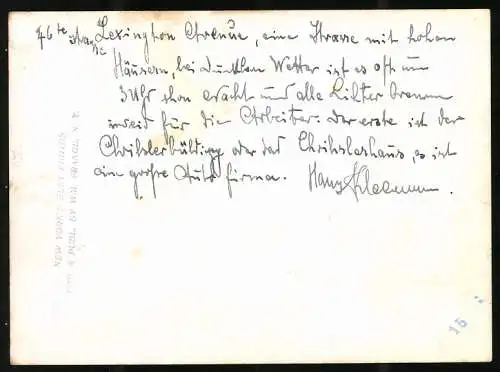 46te Lexington Avenue, eine Strasse mit hohen
Häusern, bei dunklem Wetter ist es oft um
3 Uhr schon Nacht und alle Lichter brennen
für die Arbeiter. der erste ist der
oder das Chrislerhaus, es ist
eine grosse Auto firma. Hans
NEW YORK'S BEST PHOTOS
15